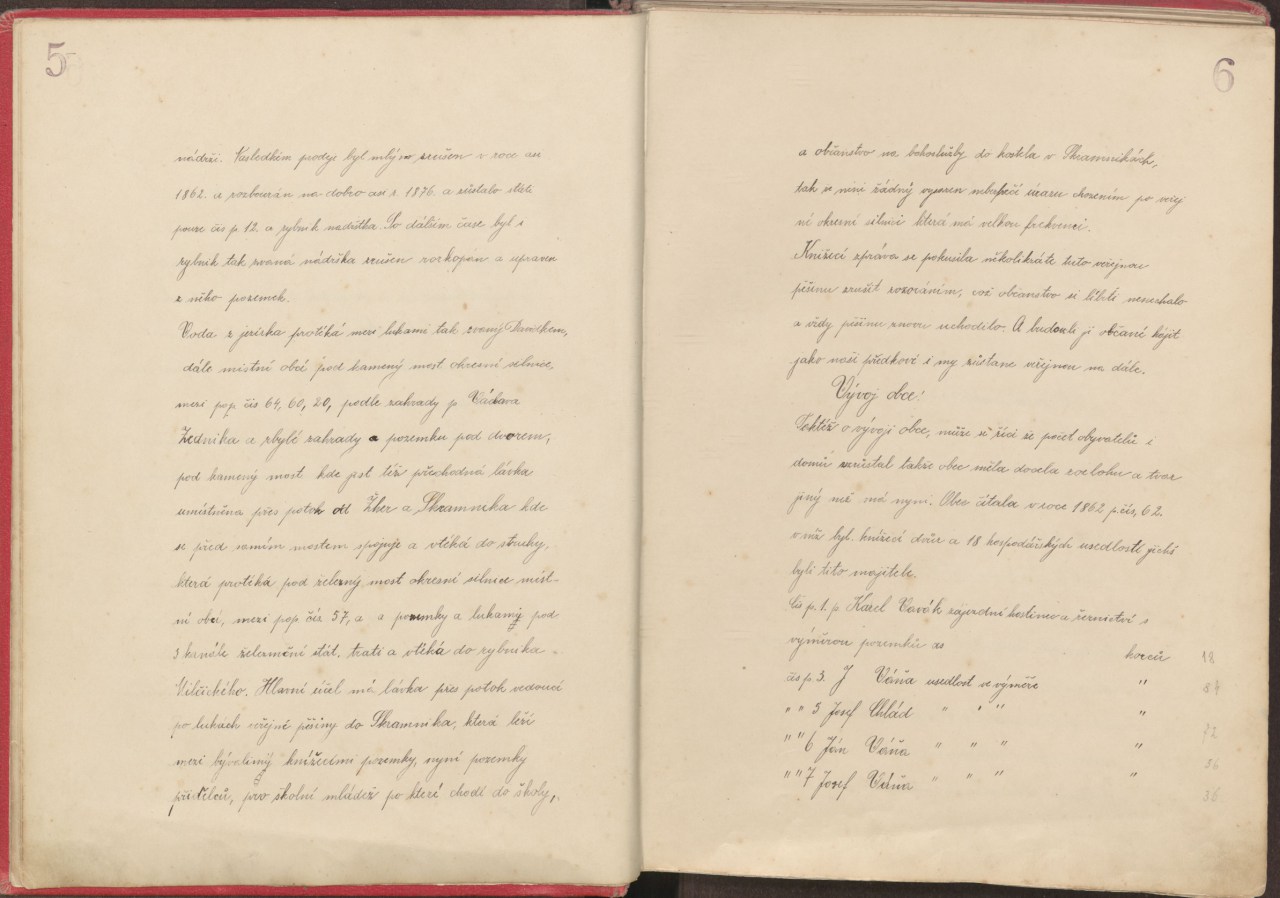 5
nádrži. Následkém prodeje byl mlýn zrušen v roce as
1862. a rozbourán na dobro as r. 1876. a zůstalo stále
pouze čís p. 12. a rybník nadržka. Po dálším čase byl i
rybník tak zvaná nádržka zrušen rozkopán a upraven
z něho pozemek.
Voda z jezírka protéká mezi lukami tak zvaný
dále místní obcí pod kamený most okresní silnice,
mezi pop čís 64, 60, 20, podle zahrady p Václava
Zedníka a zbylé zahrady a pozemku pod dvorem,
pod kamený most kde jest též přechodná lávka
umístněna přes potok od Žher a Skramníka kde
se před samím mostem spojuje a vtéká do strouhy,
která protéká pod železný most okresní silnice míst-
ní obcí, mezi pop čís 57, a a pozemky a lukamy pod
3 kanále železniční stát. trati a vtéká do rybníka -
Milčického. Hlavní účel má lávka přes potok vedoucí
po lukách veřejné pěšiny do Skramníka, která leží
mezi bývalimy knížecími pozemky, nyní pozemky
přídělců, pro školní mládež po které chodí do školy,
6
a občanstvo na bohoslužby do kostela v Skramníkách,
tak že není žádný vysazen nebespečí úrazu chozením po veřej
né okresní silnici která má velkou frekvenci.
Knížecí zpráva se pokusila několikráte tuto veřejnou
pěšinu zrušit rozoráním, což občanstvo si líbiti nenechalo
a vždy pěšinu znovu uchodilo. A budouli ji občané hájit
jako naši předkové i my zůstane veřejnou na dále.
Vývoj obce!
Taktéž o vývoji obce, může se říci že počet obyvatelů i
domů vzrůstal takže obec měla docela rozlohu a tvar
jiný než má nyní. Obec čítala v roce 1862 p. čís, 62.
v níž byl. knížecí dvůr a 18 hospodářských usedlostí jichž
byli tito majitele.
Čís p. 1. p Karel Vavák zájezdní hostinec a řeznictví s
výměrou pozemků as korců 18
čís p. 3. J Váňa usedlost ve výměře " 84
" " 5 Josef Chlád " " " " 72
" " 6 Ján Váňa " " " " 36
" " 7 Josef Váňa " " " " 36